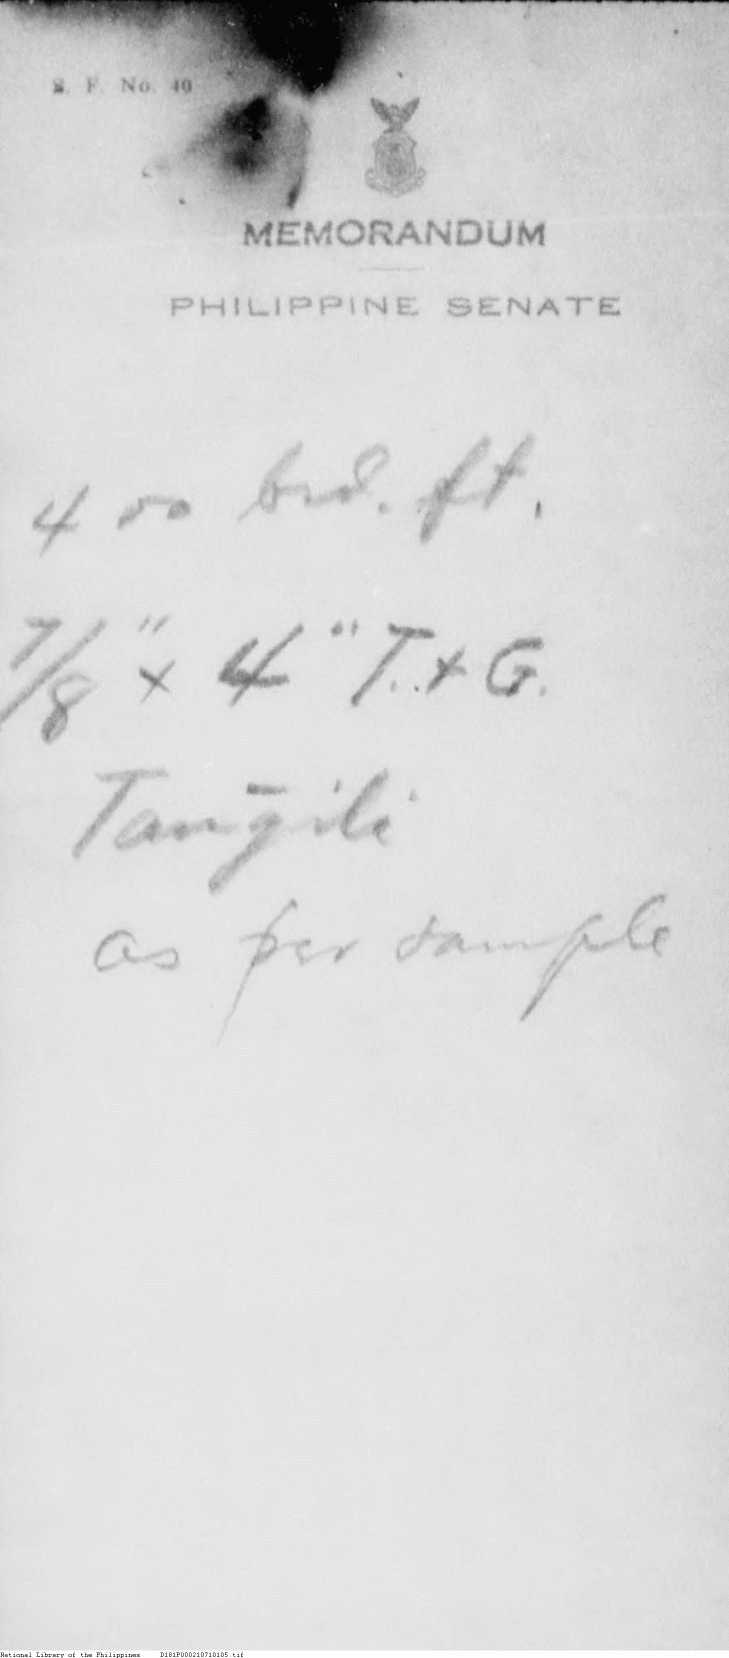 S. F. No. 40
MEMORANDUM
PHILIPPINE SENATE
400 brd. ft.
7/8" x 4" T. + G.
Tang̃ili
as per sample
National Library of the Philippines D181P000210710105.tif